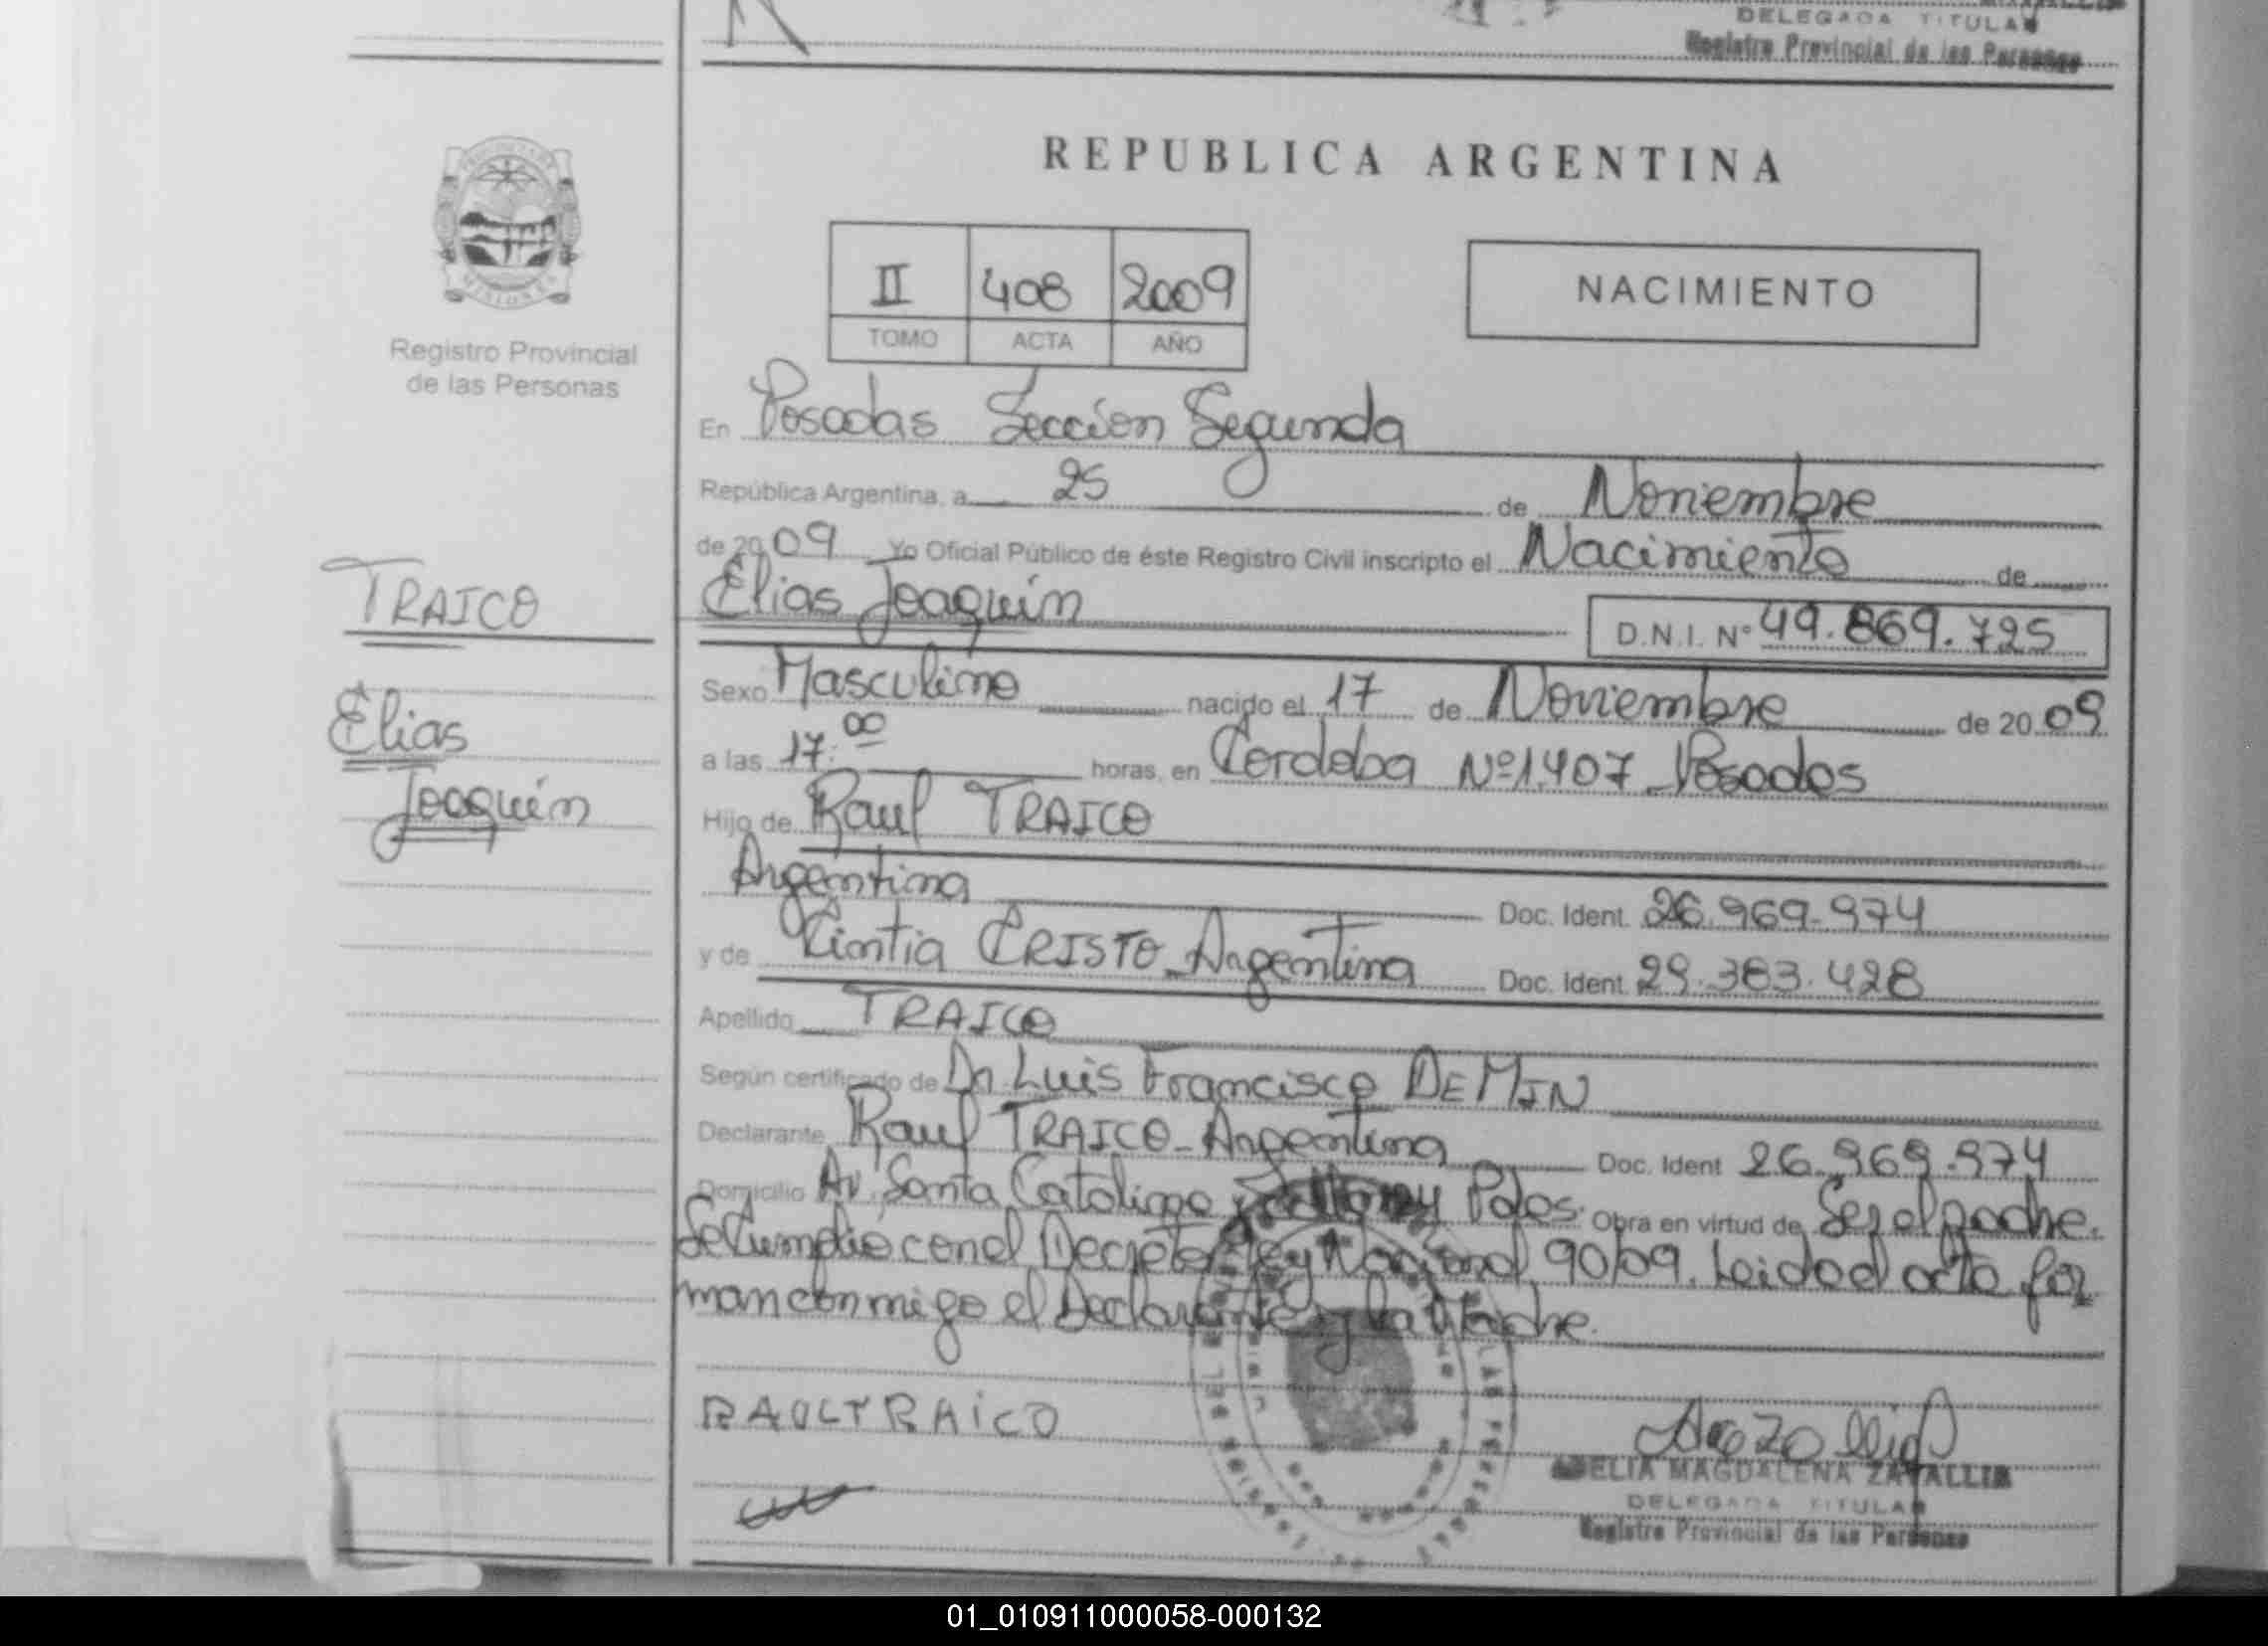 DELEGADA TITULAR
Registro Provincial de las Personas
REPUBLICA ARGENTINA
II 408 2009
TOMO ACTA AÑO
NACIMIENTO
PROVINCIA DE
MISIONES
Registro Provincial
de las Personas
TRAICO
Elias
Joaquín
En Posadas Sección Segunda
República Argentina, a 25 de Noviembre
de 2009 Yo Oficial Público de éste Registro Civil inscripto el Nacimiento de
Elias Joaquín D.N.I. Nº 49.869.725
Sexo Masculino nacido el 17 de Noviembre de 2009
a las 17:00 horas, en Cordoba Nº1.407_Posadas
Hijo de Raul TRAICO
Argentina Doc. Ident. 26.969.974
y de Cintia CRISTO_Argentina Doc. Ident. 29.383.428
Apellido TRAICO
Según certificado de Dr. Luis Francisco DE MIN
Declarante Raul TRAICO_Argentina Doc. Ident 26.969.974
Domicilio Av. Santa Catalina Pdas. Obra en virtud de Ser el padre.
Se Cumplio con el Decreto Ley Nacional 90/09. Leida el acta fir
man conmigo el Declarante y la Madre.
RAULTRAiCO
DELIA MAGDALENA ZAYALLIA
DELEGADA TITULAR
Registro Provincial de las Personas
01_010911000058-000132